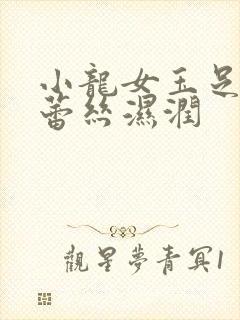 小龍女玉足
蕾絲濕潤
觀星夢青冥1